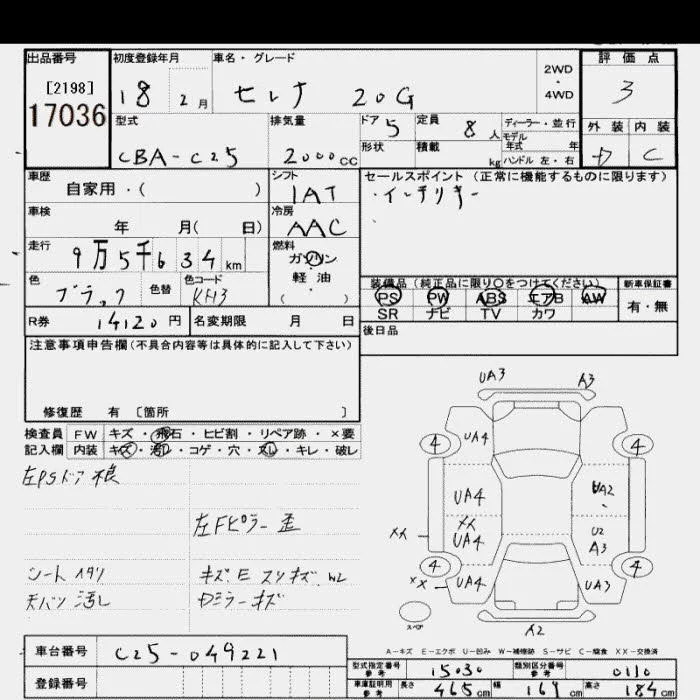 出品番号 初度登録年月 車名・グレード 2WD・4WD 評価点
[2198]
17036
18 2月 セレナ 20G 3
型式 排気量 ドア 5 定員 8人 ディーラー・並行 外装 内装
モデル年式 年
CBA-C25 2000cc 形状 積載 kg ハンドル 左・右 C
車歴 シフト セールスポイント (正常に機能するものに限ります)
自家用・( ) IAT ・インテリキー
車検 冷房
年 月( 日) AAC
走行 燃料
9万5千634km ガソリン・軽油
色 色替 色コード ( ) 装備品 (純正品に限り○をつけてください) 新車保証書
ブラック KH3 PS PW ABS エアB AW 有・無
SR ナビ TV カワ
R券 14120円 名変期限 月 日 後日品
注意事項申告欄(不具合内容等は具体的に記入して下さい)
修復歴 有 [箇所 ]
検査員 FW キズ・飛石・ヒビ割・リペア跡・×要
記入欄 内装 キズ・汚レ・コゲ・穴・スレ・キレ・破レ
左PSドア
左Fピラー 歪
シート
天バリ 汚レ
UA3 A3
4 UA4 4
UA4 UA2
XX XX
UA4 U2
A3
4 4
XX UA4 UA3
スペア
A2
A-キズ E-エクボ U-凹み W-補修跡 S-サビ C-腐食 XX-交換済
車台番号 C25-049221
登録番号
型式指定番号 参考 15030 類別区分番号 参考 0110
車庫証明用 参考 長さ 465cm 幅 169cm 高さ 184cm